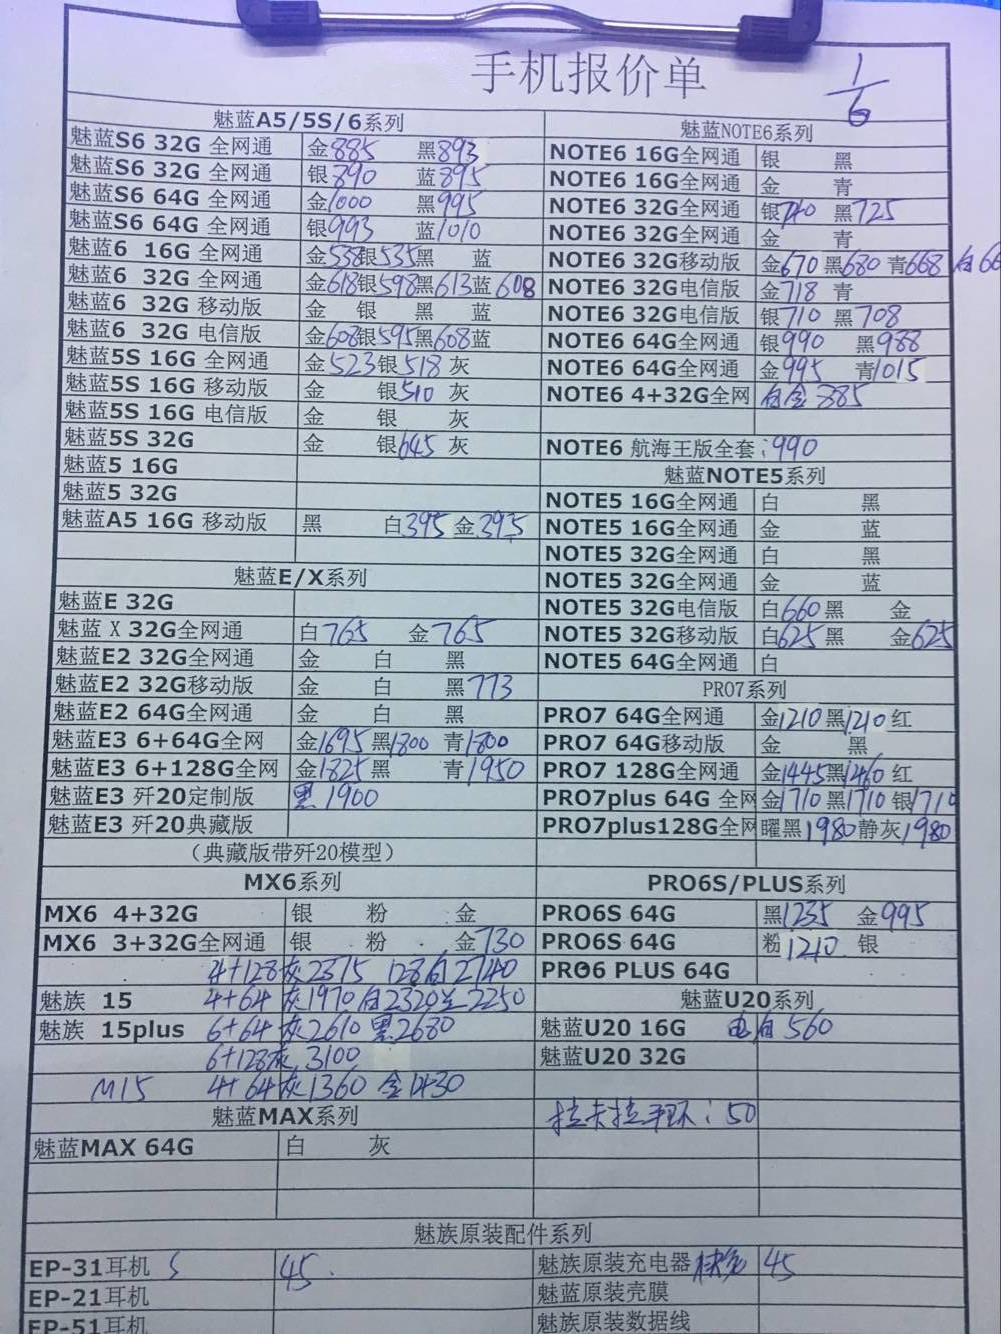 手机报价单
1/6
魅蓝A5/5S/6系列
魅蓝S6 32G 全网通 金885 黑893
魅蓝S6 32G 全网通 银890 蓝895
魅蓝S6 64G 全网通 金1000 黑995
魅蓝S6 64G 全网通 银993 蓝1010
魅蓝6 16G 全网通 金538银535黑 蓝
魅蓝6 32G 全网通 金618银598黑613蓝608
魅蓝6 32G 移动版 金 银 黑 蓝
魅蓝6 32G 电信版 金608银595黑608蓝
魅蓝5S 16G 全网通 金523银518 灰
魅蓝5S 16G 移动版 金 银510 灰
魅蓝5S 16G 电信版 金 银 灰
魅蓝5S 32G 金 银645 灰
魅蓝5 16G
魅蓝5 32G
魅蓝A5 16G 移动版 黑 白395 金393
魅蓝E/X系列
魅蓝E 32G
魅蓝 X 32G全网通 白765 金765
魅蓝E2 32G全网通 金 白 黑
魅蓝E2 32G移动版 金 白 黑773
魅蓝E2 64G全网通 金 白 黑
魅蓝E3 6+64G全网 金1695黑1800 青1800
魅蓝E3 6+128G全网 金1825黑 青1950
魅蓝E3 歼20定制版 黑1900
魅蓝E3 歼20典藏版
（典藏版带歼20模型）
MX6系列
MX6 4+32G 银 粉 金
MX6 3+32G全网通 银 粉 金730
4+128灰2375 128白2740
魅族 15 4+64灰1970白2320 2250
魅族 15plus 6+64灰2610黑2680
6+128灰3100
M15 4+64灰1360 金1430
魅蓝MAX系列
魅蓝MAX 64G 白 灰
魅蓝NOTE6系列
NOTE6 16G全网通 银 黑
NOTE6 16G全网通 金 青
NOTE6 32G全网通 银740 黑725
NOTE6 32G全网通 金 青
NOTE6 32G移动版 金670黑680青668 白66
NOTE6 32G电信版 金718 青
NOTE6 32G电信版 银710 黑708
NOTE6 64G全网通 银990 黑988
NOTE6 64G全网通 金995 青1015
NOTE6 4+32G全网 白金 885
NOTE6 航海王版全套：990
魅蓝NOTE5系列
NOTE5 16G全网通 白 黑
NOTE5 16G全网通 金 蓝
NOTE5 32G全网通 白 黑
NOTE5 32G全网通 金 蓝
NOTE5 32G电信版 白660黑 金
NOTE5 32G移动版 白625黑 金625
NOTE5 64G全网通 白
PRO7系列
PRO7 64G全网通 金1210黑1210红
PRO7 64G移动版 金 黑
PRO7 128G全网通 金1445黑1460红
PRO7plus 64G 全网 金1710黑1710银1710
PRO7plus128G全网 曜黑1980静灰1980
PRO6S/PLUS系列
PRO6S 64G 黑1235 金995
PRO6S 64G 粉1210 银
PRO6 PLUS 64G
魅蓝U20系列
魅蓝U20 16G 电白560
魅蓝U20 32G
拉卡拉手环：50
魅族原装配件系列
EP-31耳机 45
EP-21耳机
EP-51耳机
魅族原装充电器 快充 45
魅蓝原装壳膜
魅族原装数据线